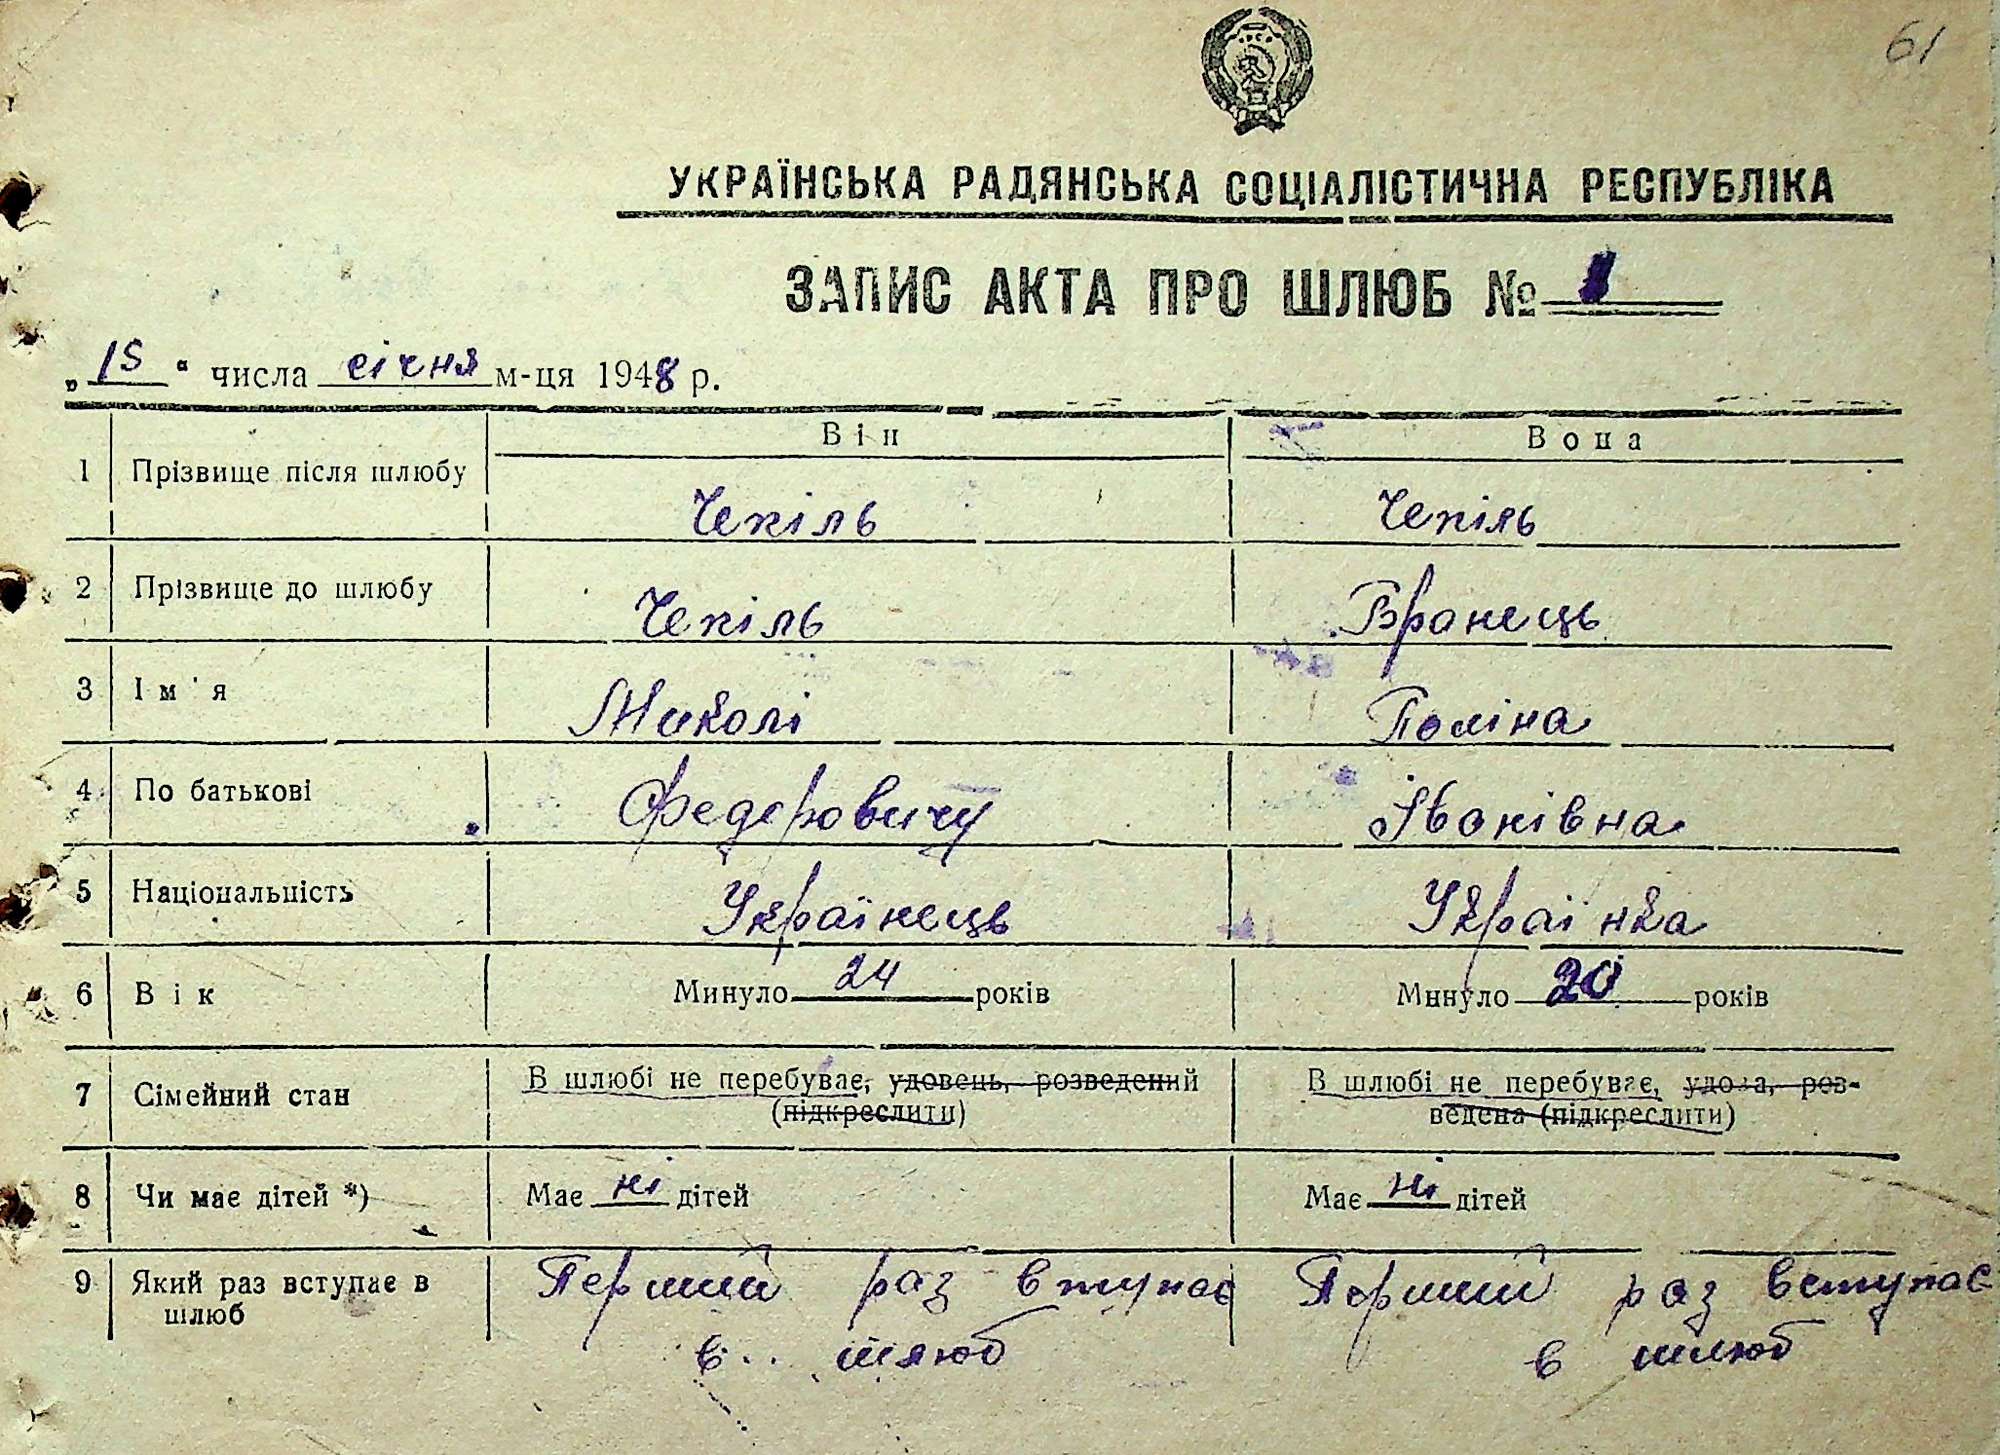 61
УКРАЇНСЬКА РАДЯНСЬКА СОЦІАЛІСТИЧНА РЕСПУБЛІКА
ЗАПИС АКТА ПРО ШЛЮБ № 1
„15“ числа січня м-ця 1948 р.
Він Вона
1 Прізвище після шлюбу Чепіль Чепіль
2 Прізвище до шлюбу Чепіль Вранець
3 Ім'я Миколі Поліна
4 По батькові Федоровичу Іванівна
5 Національність Українець Українка
6 Вік Минуло 24 років Минуло 20 років
7 Сімейний стан В шлюбі не перебуває, удовець, розведений В шлюбі не перебуває, удова, роз-
(підкреслити) ведена (підкреслити)
8 Чи має дітей *) Має ні дітей Має ні дітей
9 Який раз вступає в Перший раз втупає Перший раз вступає
шлюб в шлюб в шлюб